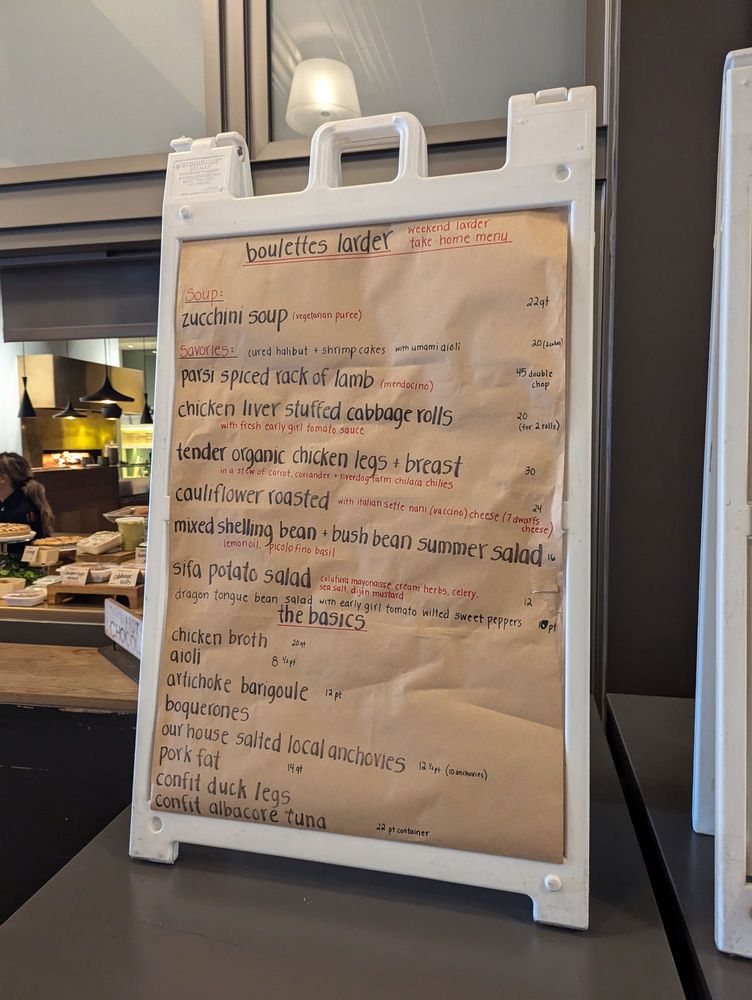 boulettes larder weekend larder
take-home menu
Soup:
zucchini soup (vegetarian puree) 22qt
Savories: cured halibut + shrimp cakes with umami aioli 20 (2cakes)
parsi spiced rack of lamb (mendocino) 45 double
chop
chicken liver stuffed cabbage rolls 20
with fresh early girl tomato sauce (for 2 rolls)
tender organic chicken legs + breast 30
in a stew of carrot, coriander + riverdog farm chilaca chilies
cauliflower roasted with italian sette nani (vaccino) cheese (7 dwarfs 24
cheese)
mixed shelling bean + bush bean summer salad 16
lemon oil, picolo fino basil
sifa potato salad colutura mayonaisse cream, herbs, celery,
sea salt, dijin mustard 12
dragon tongue bean salad with early girl tomato wilted sweet peppers pt
the basics
chicken broth 20qt
aioli 8 ½pt
artichoke barigoule 12 pt
boquerones
our house salted local anchovies 12 ½pt (10 anchovies)
pork fat 14 qt
confit duck legs
confit albacore tuna 22 pt container